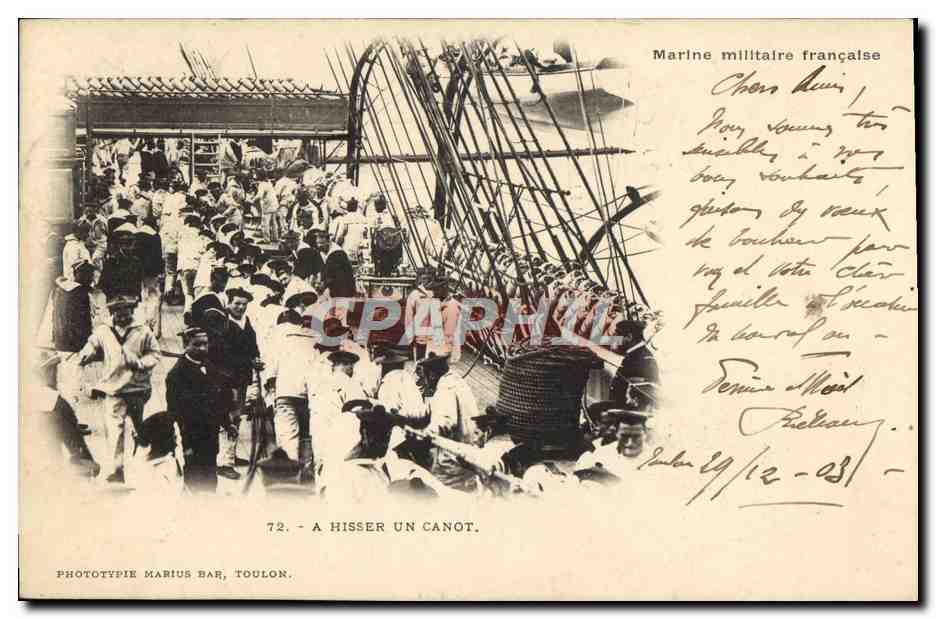 Marine militaire française
Chers Amis,
Nous sommes très
sensibles à vos
bons souhaits,
de bonheur pour
vous et votre chère
famille à l'occasion
du nouvel an
Toulon 29/12-03
CPAPHIL
72. - A HISSER UN CANOT.
PHOTOTYPIE MARIUS BAR, TOULON.